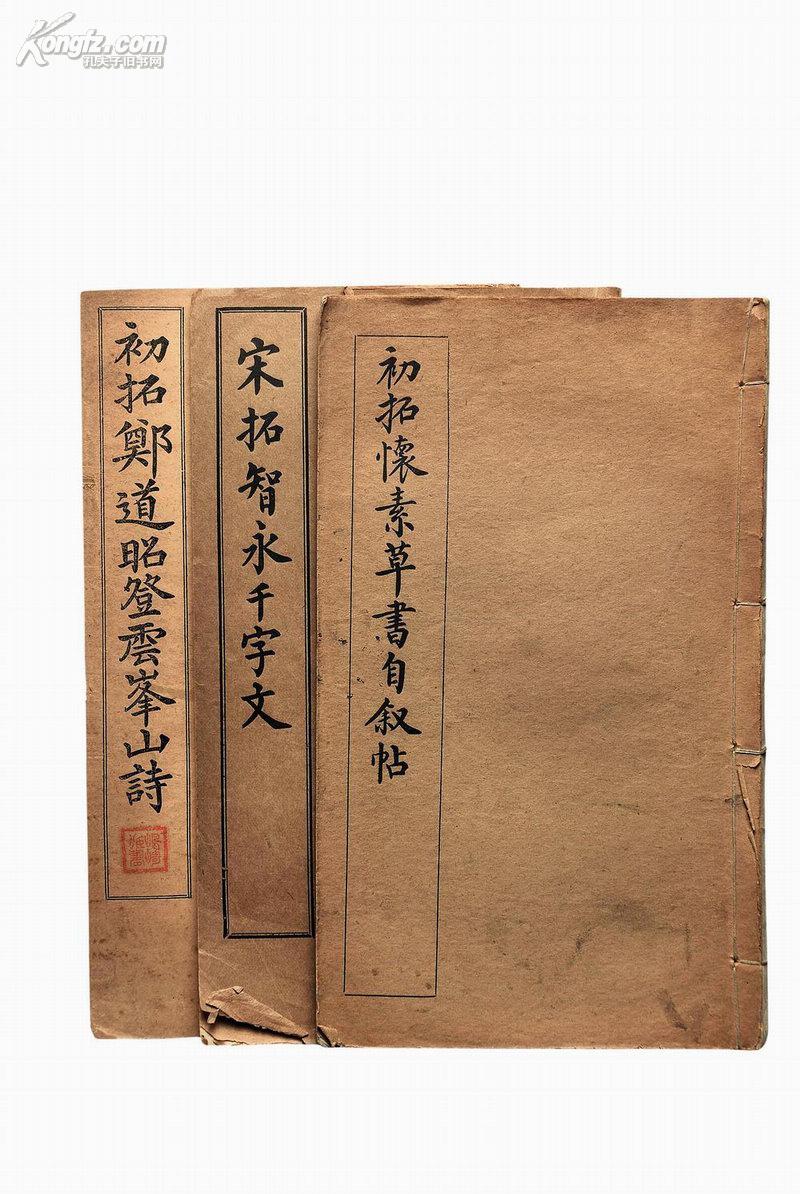 Kongfz.com
孔夫子旧书网
初拓懷素草書自叙帖
宋拓智永千字文
初拓鄭道昭登雲峯山詩